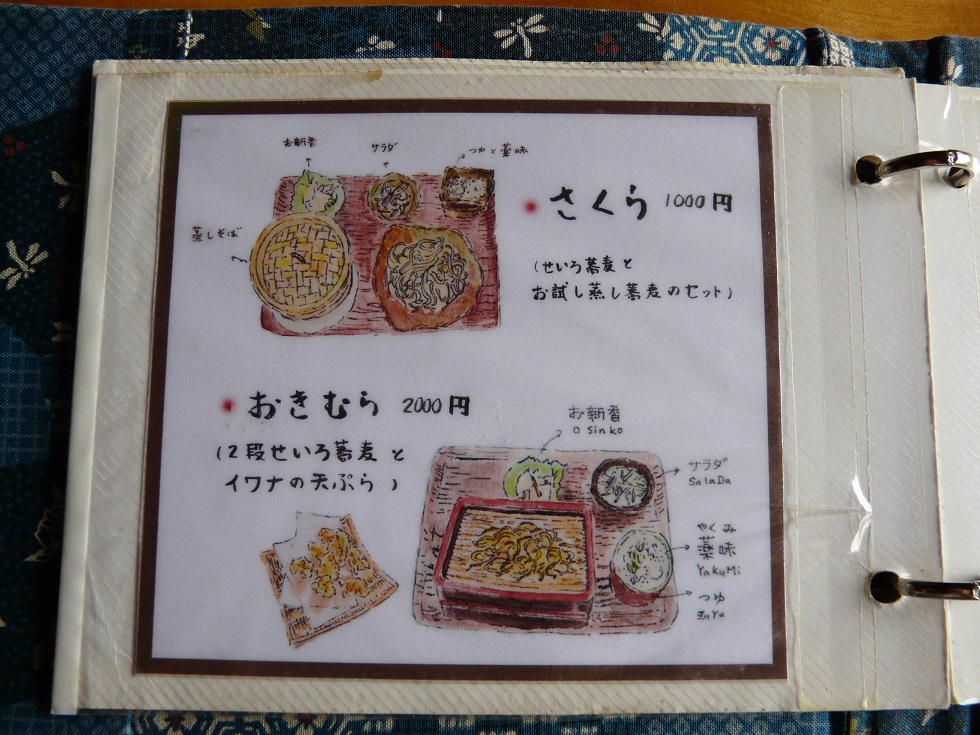 お新香
サラダ
つゆと薬味
蒸しそば
さくら 1000円
(せいろ蕎麦と
お試し蒸し蕎麦のセット)
おきむら 2000円
(2段せいろ蕎麦と
イワナの天ぷら)
お新香
O Sinko
サラダ
SalaDa
やくみ
薬味
YakuMi
つゆ
zuYu